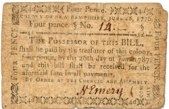 Four Pence.
COLONY OF NEW HAMPSHIRE, June 28, 1776.
Four pence } No. 14
THE Possessor of THIS BILL,
shall be paid by the Treasurer of this Colony,
Four pence, by the 20th day of January, 1787
and this Bill shall be received for the
aforesaid sum in all payments
ORDER of the COUNCIL and ASSEMBLY
N Emery